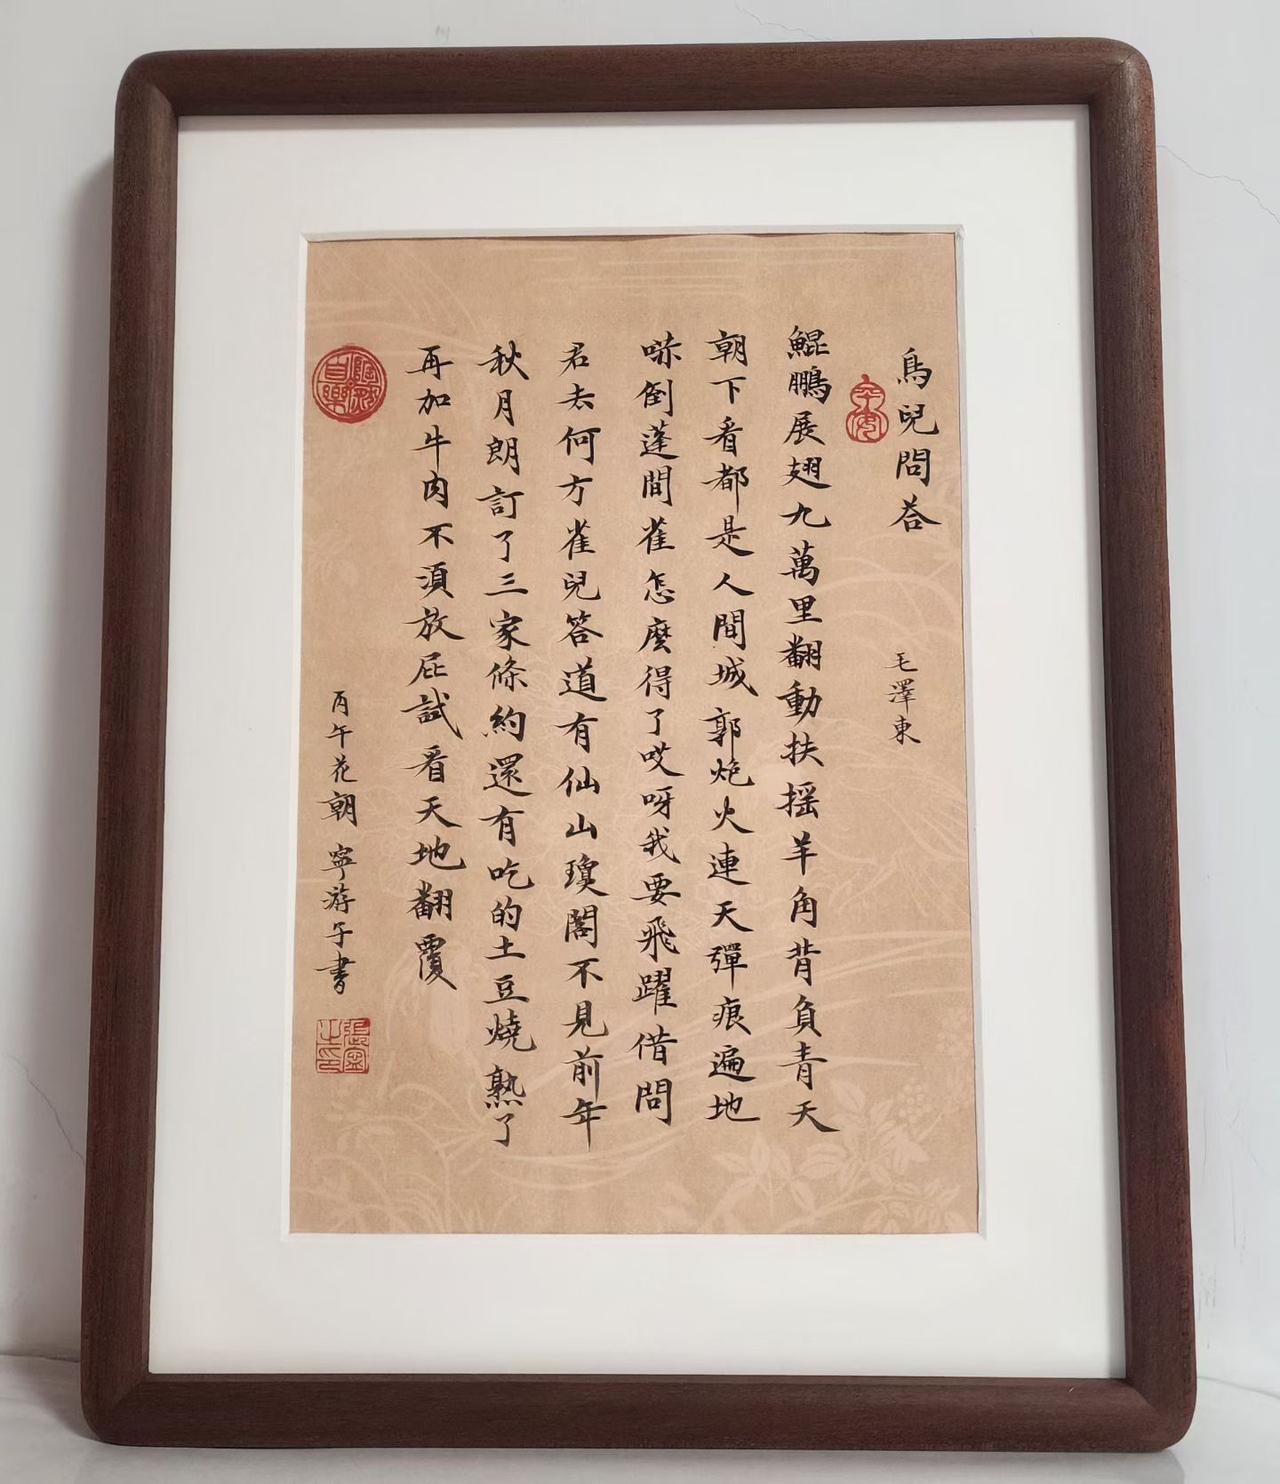 鳥兒問答
毛澤東
鯤鵬展翅九萬里翻動扶搖羊角背負青天
朝下看都是人間城郭炮火連天彈痕遍地
嚇倒蓬間雀怎麼得了哎呀我要飛躍借問
君去何方雀兒答道有仙山瓊閣不見前年
秋月朗訂了三家條約還有吃的土豆燒熟了
再加牛肉不須放屁試看天地翻覆
丙午花朝寧游子書